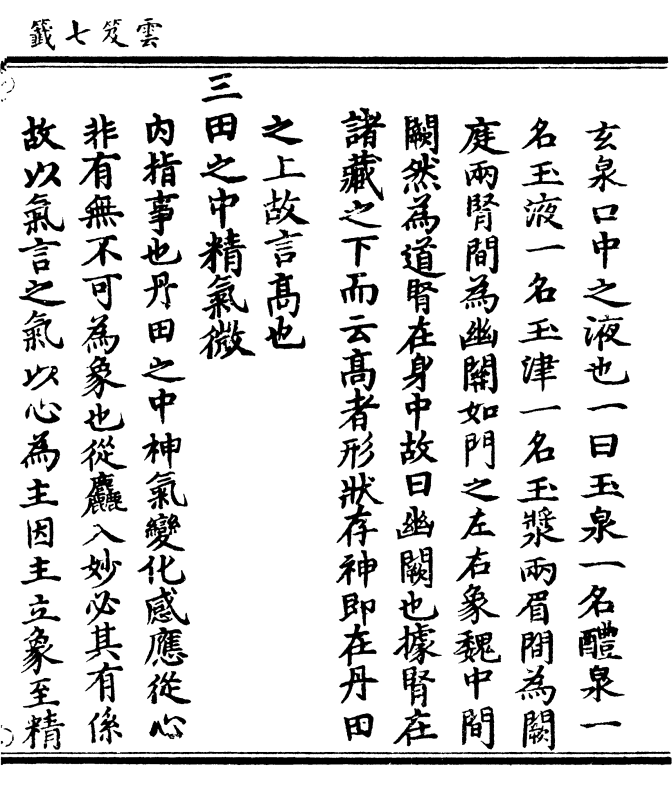 雲笈七籤
玄泉口中之液也一曰玉泉一名醴泉一
名玉液一名玉津一名玉漿兩眉間為闕
庭兩腎間為幽關如門之左右象魏中間
闕然為道腎在身中故曰幽闕也據腎在
諸藏之下而云髙者形狀存神即在丹田
之上故言髙也
三田之中精氣微
内指事也丹田之中神氣變化感應從心
非有無不可為象也從麤入妙必其有係
故以氣言之氣以心為主因主立象至精